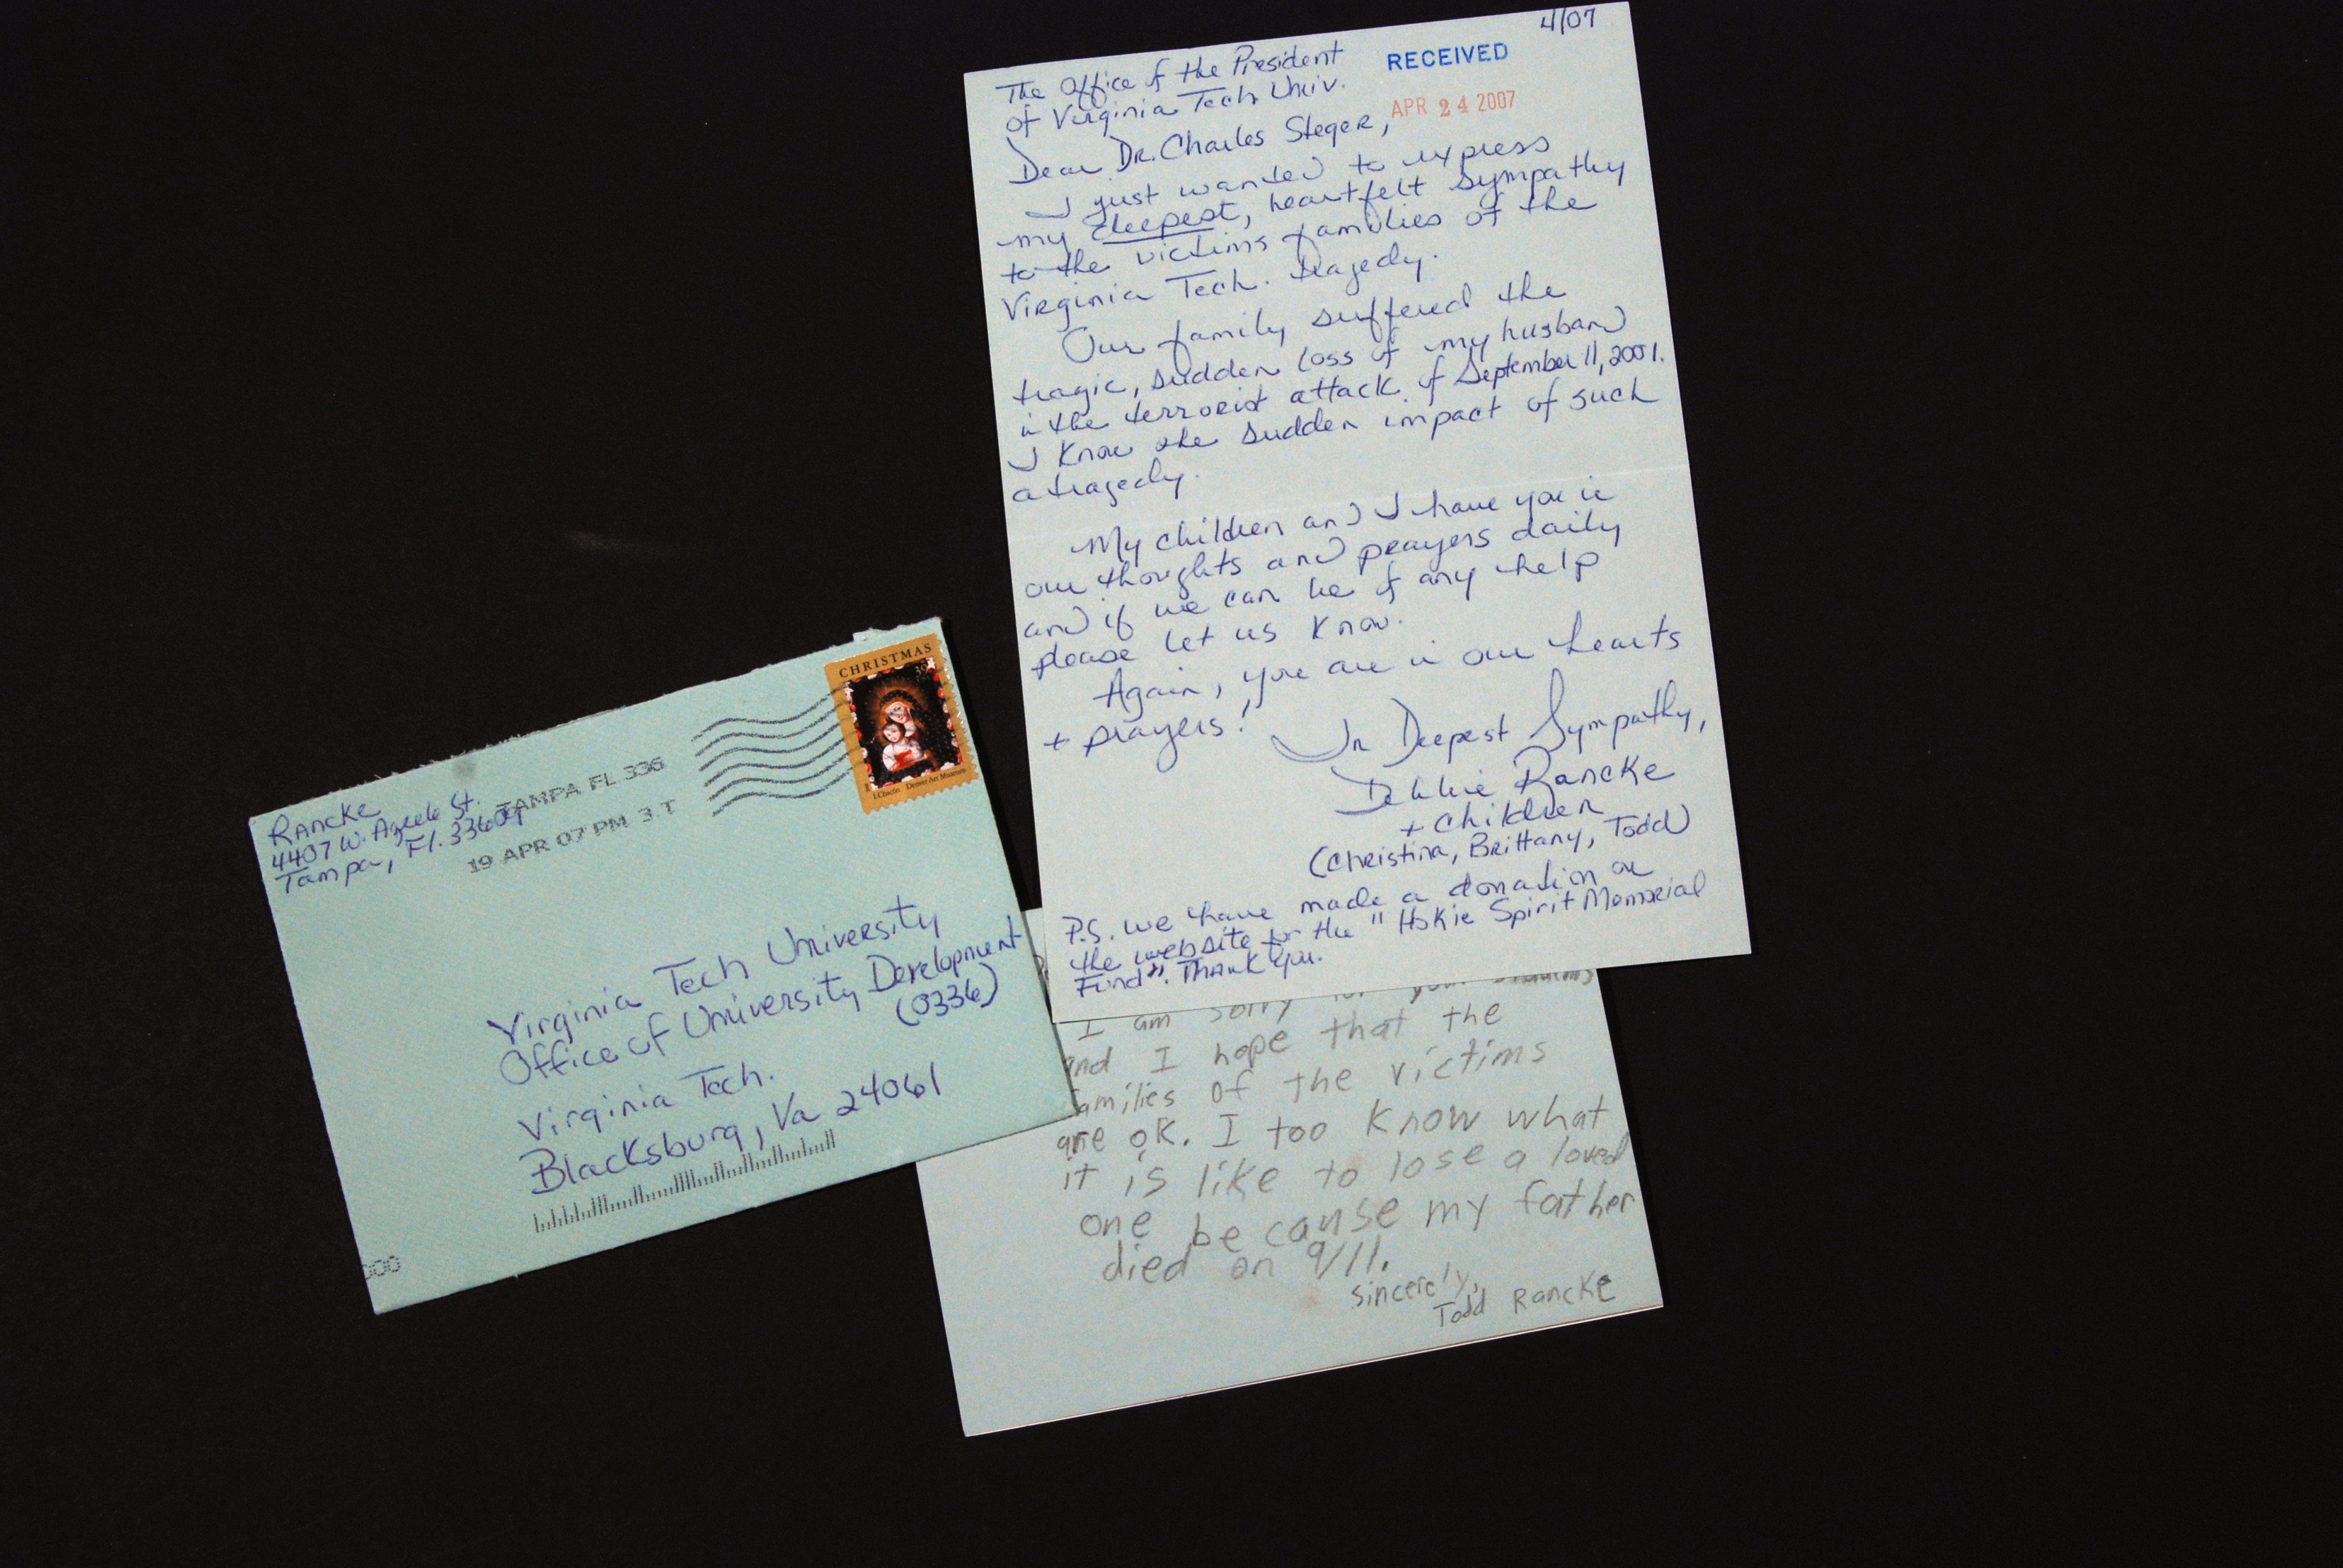 4/07
The Office of the President
of Virginia Tech Univ.
RECEIVED
APR 24 2007
Dear Dr. Charles Steger,
I just wanted to express
my deepest, heartfelt sympathy
to the victims families of the
Virginia Tech. tragedy.
Our family suffered the
tragic, sudden loss of my husband
in the terrorist attack of September 11, 2001.
I know the sudden impact of such
a tragedy.
My children and I have you in
our thoughts and prayers daily
and if we can be of any help
please let us know.
Again, you are in our hearts
+ prayers!
In Deepest Sympathy,
Debbie Rancke
+ children
(Christina, Brittany, Todd)
P.S. we have made a donation on
the website for the "Hokie Spirit Memorial
Fund". Thank you.
CHRISTMAS
39
I. Chacón Denver Art Museum
Rancke
4407 W. Azeele St.
Tampa, Fl. 33609
TAMPA FL 336
19 APR 07 PM 3 T
Virginia Tech University
Office of University Development
(0336)
Virginia Tech.
Blacksburg, Va 24061
000
I am sorry for your
and I hope that the
families of the victims
are ok. I too know what
it is like to lose a loved
one because my father
died on 9/11.
sincerely,
Todd Rancke